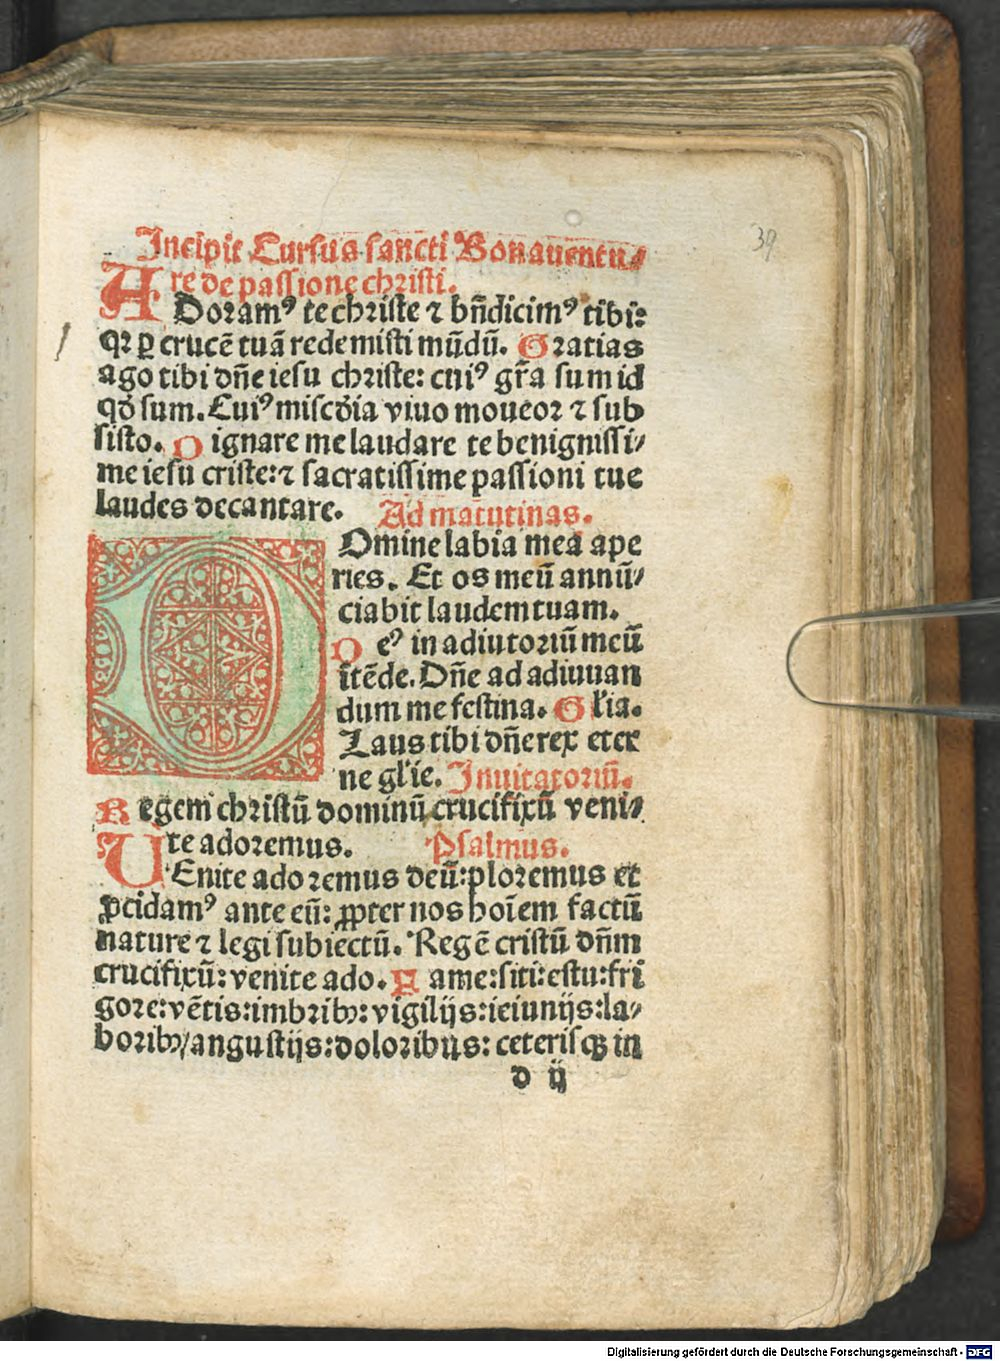 39
Incipit Cursus sancti Bonauentu⸗
re de passione christi.
ADoramꝰ te christe ⁊ bn̄dicimꝰ tibi:
qꝛ ꝑ crucē tuā redemisti mūdū. Gratias
ago tibi dn̄e iesu christe: cuiꝰ gr̄a sum id
qd̄ sum. Cuiꝰ miscd̓ia viuo moueor ⁊ sub
sisto. Dignare me laudare te benignissi⸗
me iesu criste: ⁊ sacratissime passioni tue
laudes decantare. Ad matutinas.
DOmine labia mea ape
ries. Et os meū annū⸗
ciabit laudem tuam.
Deꝰ in adiutoriū meū
ītēde. Dn̄e ad adiuuan
dum me festina. Gl̓ia.
Laus tibi dn̄e rex eter
ne gl̓ie. Inuitatoriū.
Regem christū dominū crucifixū veni⸗
te adoremus. Psalmus.
VEnite adoremus deū: ploremus et
ꝓcidamꝰ ante eū: ꝓpter nos hoīem factū
nature ⁊ legi subiectū. Regē cristū dn̄m
crucifixū: venite ado. Fame: siti: estu: fri
gore: vētis: imbribꝫ: vigilijs: ieiunijs: la⸗
boribꝫ/ angustijs: doloribus: ceterisqꝫ in
d ij
Digitalisierung gefördert durch die Deutsche Forschungsgemeinschaft - DFG